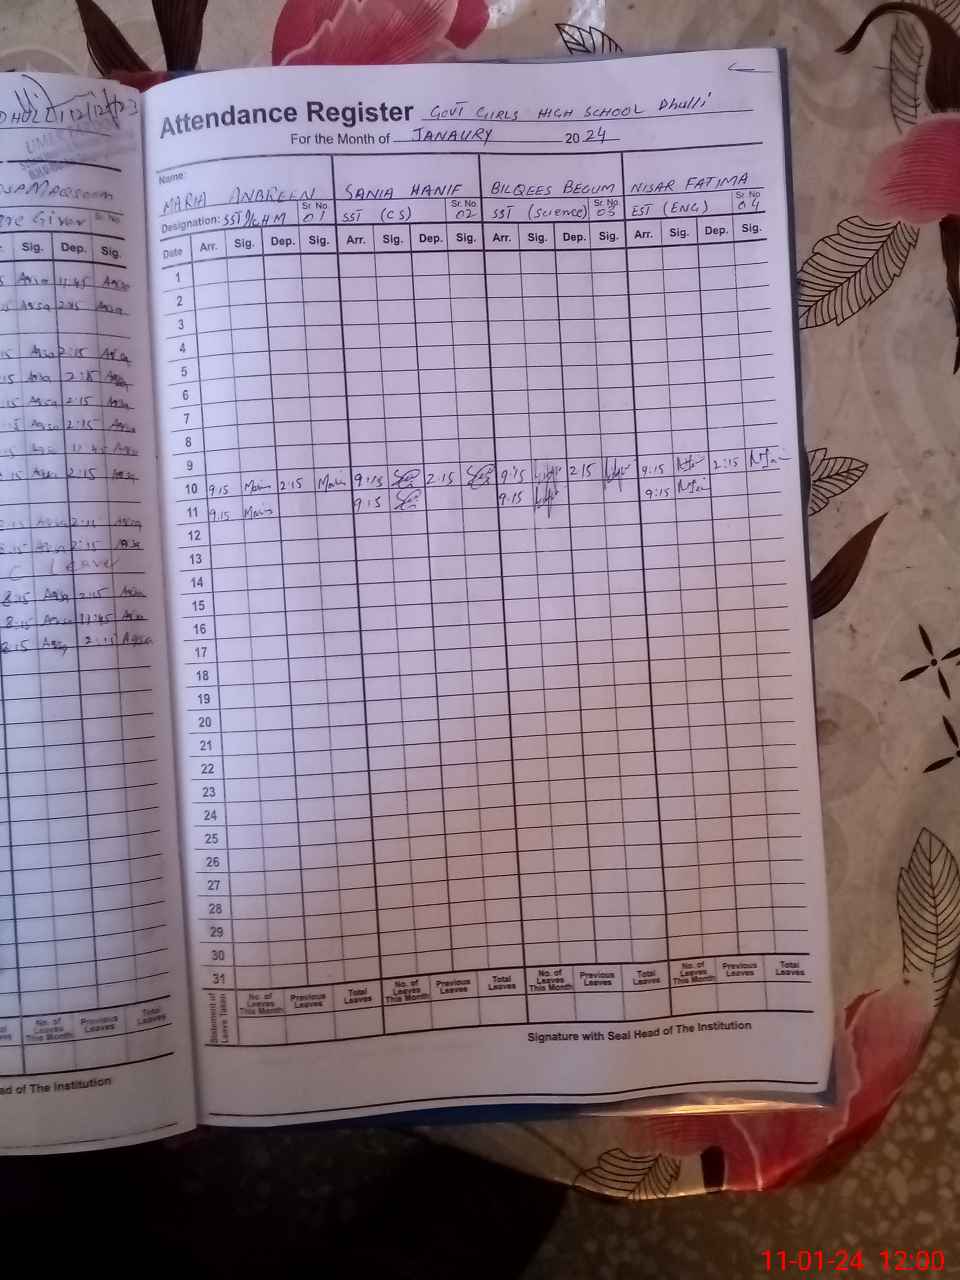 12/12/23
Attendance Register GOVT GIRLS HIGH SCHOOL Dhulli
For the Month of JANAURY 2024
Name:
MARIA ANBREEN SANIA HANIF BILQEES BEGUM NISAR FATIMA
Designation: SST/I/C HM Sr. No. 01 SST (CS) Sr. No. 02 SST (Science) Sr. No. 03 EST (ENG) Sr. No. 04
Date Arr. Sig. Dep. Sig. Arr. Sig. Dep. Sig. Arr. Sig. Dep. Sig. Arr. Sig. Dep. Sig.
1
2
3
4
5
6
7
8
9
10 9:15 Maria 2:15 Maria 9:15 2:15 9:15 2:15 9:15 2:15
11 9:15 Maria 9:15 9:15 9:15
12
13
14
15
16
17
18
19
20
21
22
23
24
25
26
27
28
29
30
31
Statement of Leave Taken No. of Leaves This Month Previous Leaves Total Leaves No. of Leaves This Month Previous Leaves Total Leaves No. of Leaves This Month Previous Leaves Total Leaves No. of Leaves This Month Previous Leaves Total Leaves
Signature with Seal Head of The Institution
Sr. No.
Sig. Dep. Sig.
Aqsa 11:45 Aqsa
Aqsa 2:15 Aqsa
Aqsa 2:15 Aqsa
Aqsa 2:15 Aqsa
Aqsa 2:15 Aqsa
Aqsa 2:15 Aqsa
Aqsa 11:45 Aqsa
Aqsa 2:15 Aqsa
Aqsa 2:15 Aqsa
Aqsa 2:15 Aqsa
C Leave
8:15 Aqsa 2:15 Aqsa
8:15 Aqsa 11:45 Aqsa
8:15 Aqsa 2:15 Aqsa
No. of Leaves This Month Previous Leaves Total Leaves
ad of The Institution
11-01-24 12:00